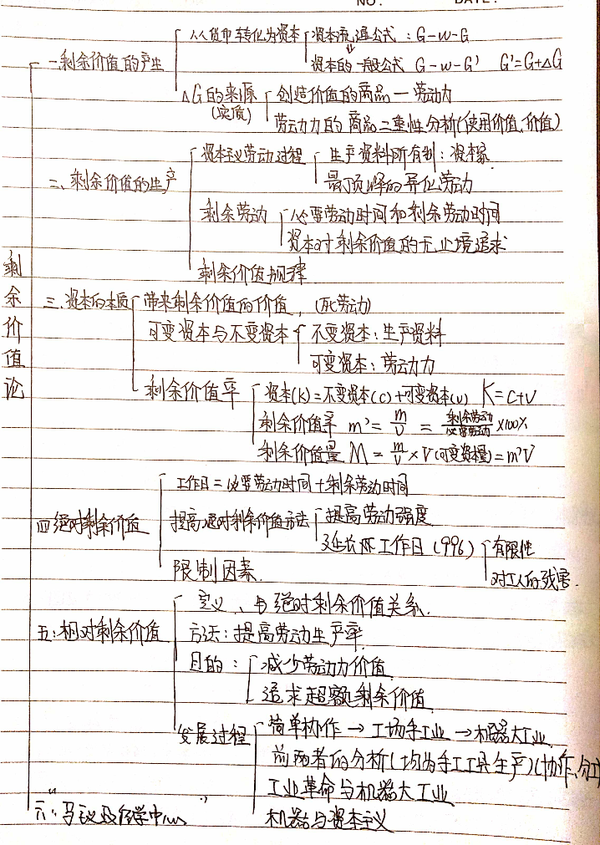 NO. DATE.
剩余价值论
一.剩余价值的产生
从货币转化为资本
资本流通公式：G-W-G
资本的一般公式 G-W-G' G'=G+ΔG
ΔG的来源(实质)
创造价值的商品—劳动力
劳动力的商品二重性分析(使用价值,价值)
二、剩余价值的生产
资本主义劳动过程
生产资料所有制：资本家
最顶峰的异化劳动
剩余劳动
必要劳动时间和剩余劳动时间
资本对剩余价值的无止境追求
剩余价值规律
三.资本的本质
带来剩余价值的价值，(死劳动)
可变资本与不变资本
不变资本：生产资料
可变资本：劳动力
剩余价值率
资本(K)=不变资本(c)+可变资本(v) K=c+v
剩余价值率 m'=m/v=剩余劳动/必要劳动×100%
剩余价值量 M=m/v×V(可变资本量)=m'V
四绝对剩余价值
工作日=必要劳动时间+剩余劳动时间
提高绝对剩余价值方法
提高劳动强度
延长 工作日(996)
有限性
对工人的残害.
限制因素.
五:相对剩余价值
定义、与绝对剩余价值关系.
方法:提高劳动生产率.
目的：
减少劳动力价值
追求超额剩余价值
发展过程
简单协作→工场手工业→机器大工业.
前两者的分析(均为手工工具生产)(协作,分工)
工业革命与机器大工业
机器与资本主义
六."马 学中 "